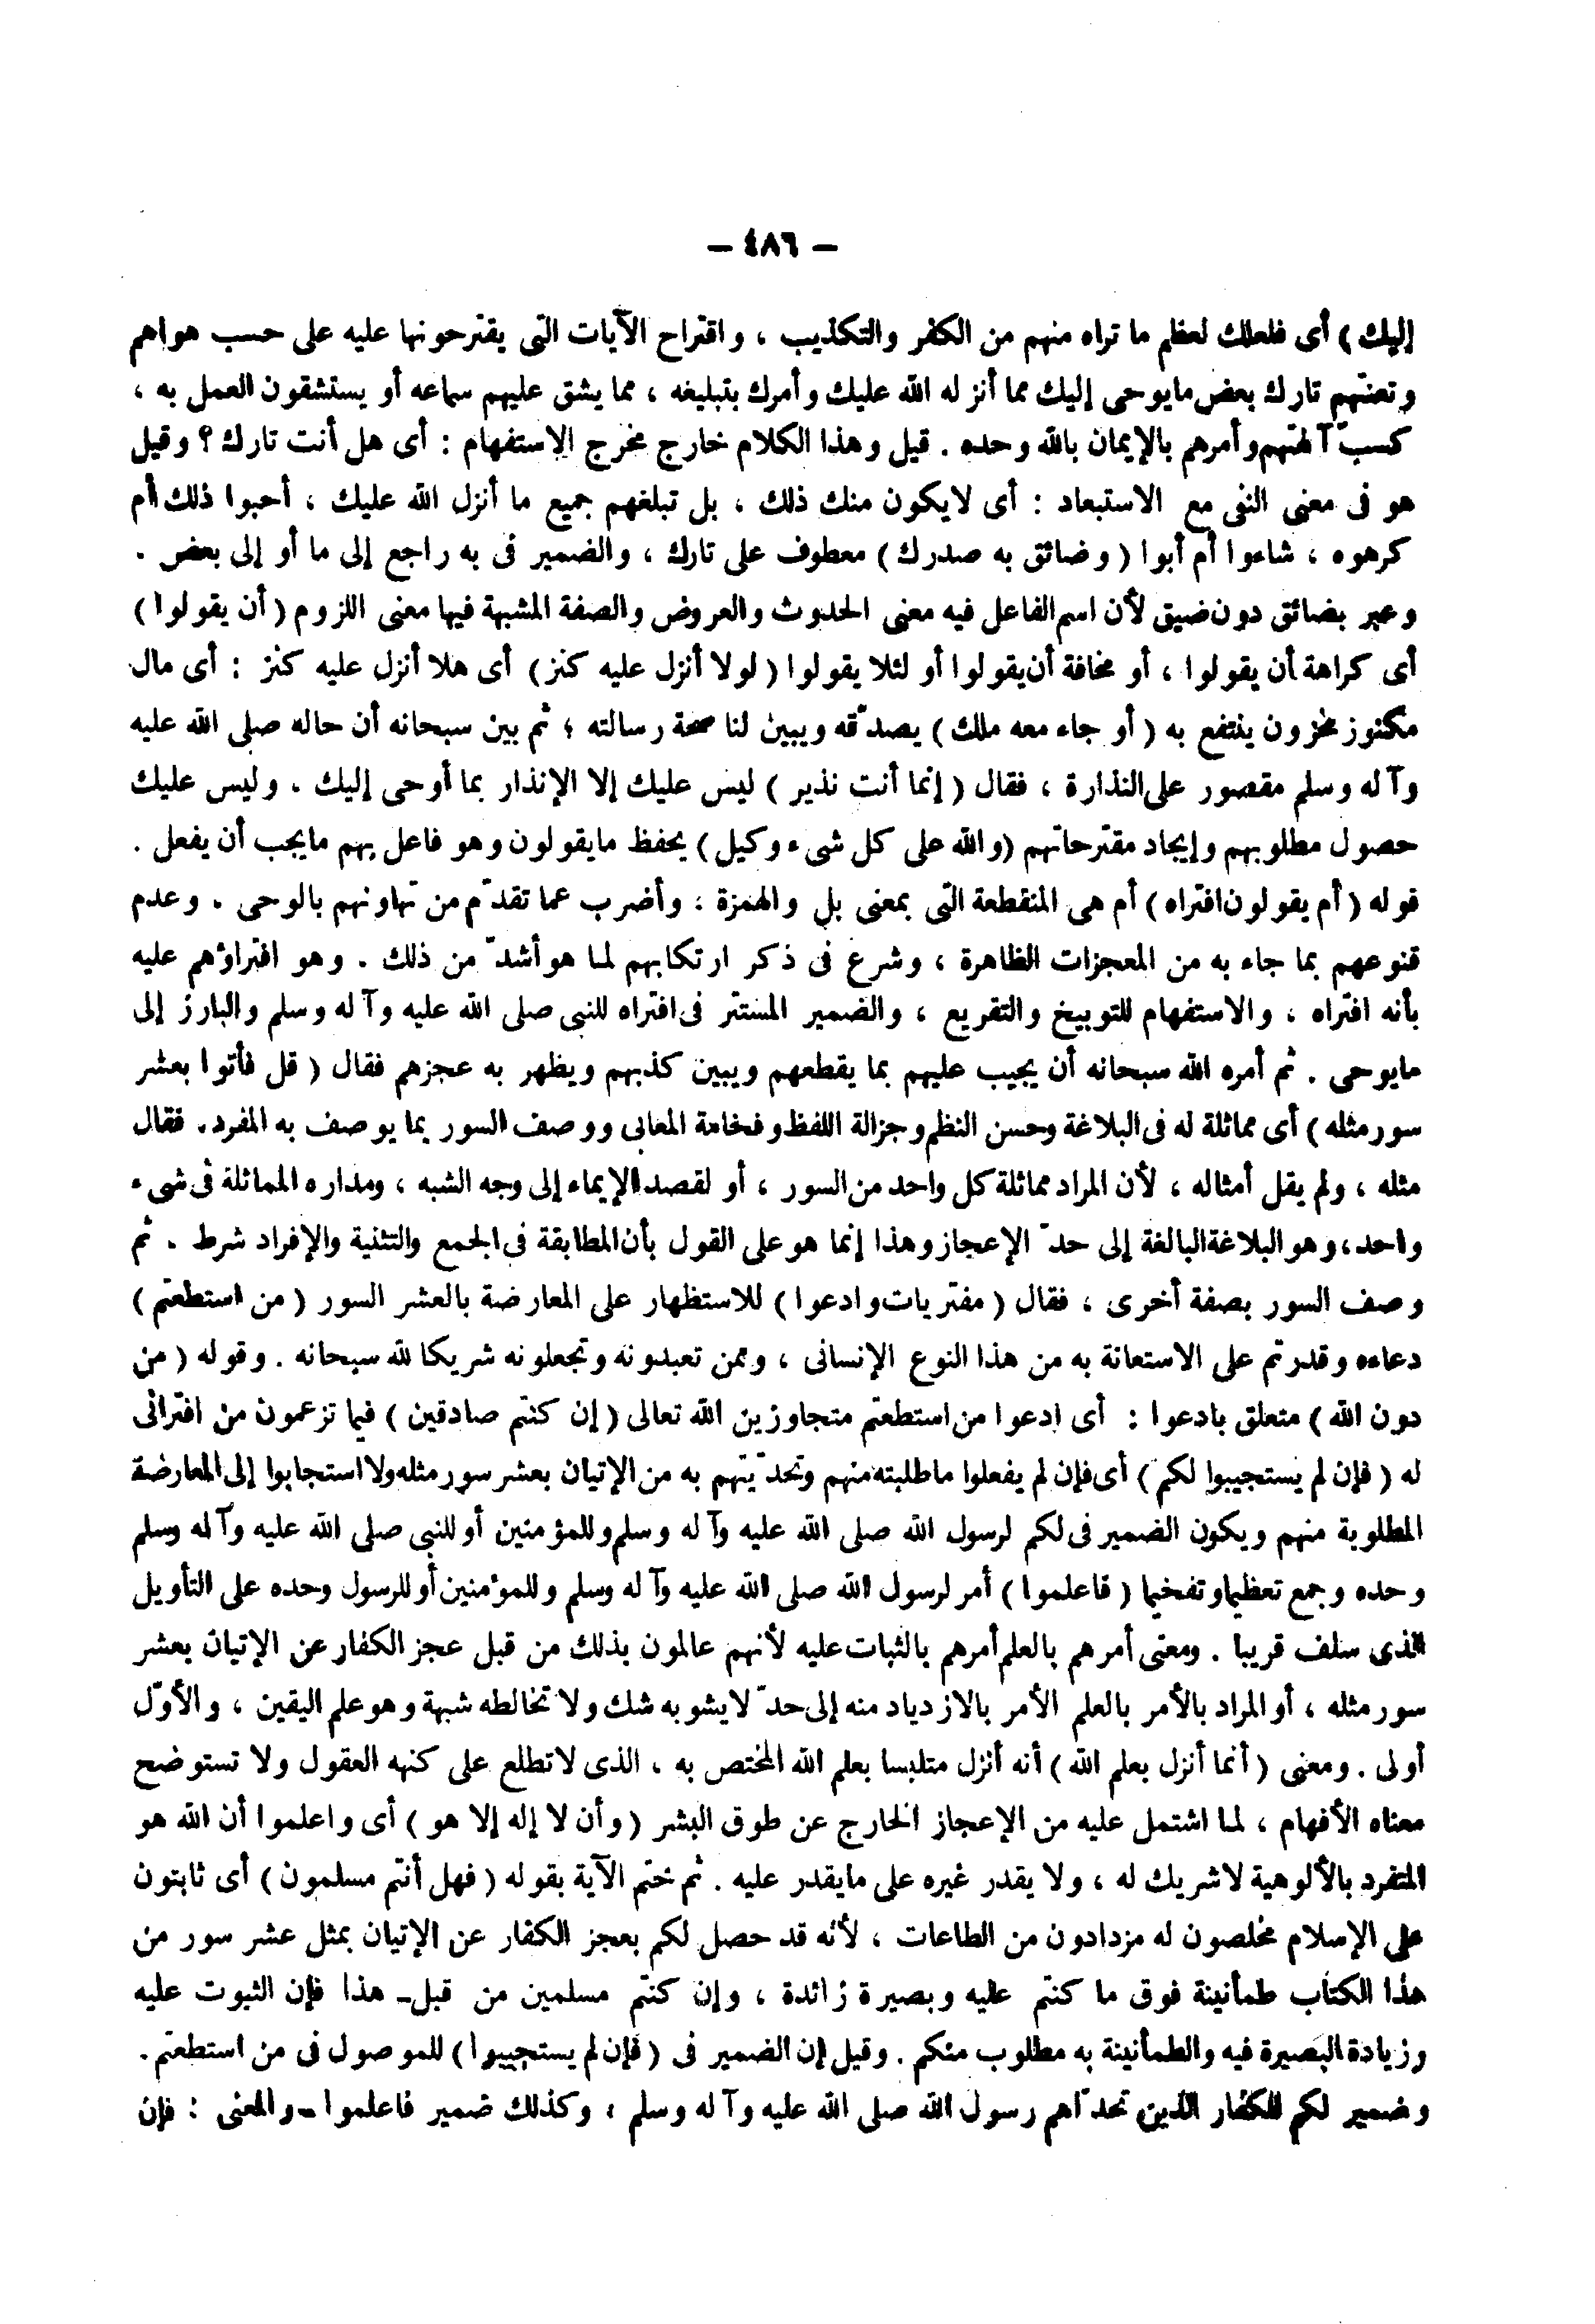 — ٤٨٦ —
إليك ) أى فلعلك لعظم ما تراه منهم من الكفر والتكذيب ، واقتراح الآيات التى يقترحونها عليه على حسب هواهم
وتعنتهم تارك بعض مايوحى إليك مما أنزله الله عليك وأمرك بتبليغه ، مما يشق عليهم سماعه أو يستشقون العمل به ،
كسبّ آلهتهم وأمرهم بالإيمان بالله وحده . قيل وهذا الكلام خارج مخرج الاستفهام : أى هل أنت تارك ؟ وقيل
هو فى معنى النفى مع الاستبعاد : أى لايكون منك ذلك ، بل تبلغهم جميع ما أنزل الله عليك ، أحبوا ذلك أم
كرهوه ، شاءوا أم أبوا ( وضائق به صدرك ) معطوف على تارك ، والضمير فى به راجع إلى ما أو إلى بعض .
وعبر بضائق دون ضيق لأن اسم الفاعل فيه معنى الحدوث والعروض والصفة المشبهة فيها معنى اللزوم ( أن يقولوا )
أى كراهة أن يقولوا ، أو مخافة أن يقولوا أو لئلا يقولوا ( لولا أنزل عليه كنز ) أى هلا أنزل عليه كنز : أى مال
مكنوز مخزون ينتفع به ( أو جاء معه ملك ) يصدّقه ويبين لنا صحة رسالته ؛ ثم بين سبحانه أن حاله صلى الله عليه
وآله وسلم مقصور على النذارة ، فقال ( إنما أنت نذير ) ليس عليك إلا الإنذار بما أوحى إليك . وليس عليك
حصول مطلوبهم وإيجاد مقترحاتهم ( والله على كل شىء وكيل ) يحفظ مايقولون وهو فاعل بهم مايجب أن يفعل .
قوله ( أم يقولون افتراه ) أم هى المنقطعة التى بمعنى بل والهمزة ، وأضرب عما تقدّم من تهاونهم بالوحى . وعدم
قنوعهم بما جاء به من المعجزات الظاهرة ، وشرع فى ذكر ارتكابهم لما هو أشدّ من ذلك . وهو افتراؤهم عليه
بأنه افتراه ، والاستفهام للتوبيخ والتقريع ، والضمير المستتر فى افتراه للنبى صلى الله عليه وآله وسلم والبارز إلى
مايوحى . ثم أمره الله سبحانه أن يجيب عليهم بما يقطعهم ويبين كذبهم ويظهر به عجزهم فقال ( قل فأتوا بعشر
سور مثله ) أى مماثلة له فى البلاغة وحسن النظم وجزالة اللفظ وفخامة المعانى ووصف السور بما يوصف به المفرد . فقال
مثله ، ولم يقل أمثاله ، لأن المراد مماثلة كل واحد من السور ، أو لقصد الإيماء إلى وجه الشبه ، ومداره المماثلة فى شىء
واحد ، وهو البلاغة البالغة إلى حدّ الإعجاز وهذا إنما هو على القول بأن المطابقة فى الجمع والتثنية والإفراد شرط . ثم
وصف السور بصفة أخرى ، فقال ( مفتريات وادعوا ) للاستظهار على المعارضة بالعشر السور ( من استطعتم )
دعاءه وقدرتم على الاستعانة به من هذا النوع الإنسانى ، وممن تعبدونه وتجعلونه شريكا لله سبحانه . وقوله ( من
دون الله ) متعلق بادعوا : أى ادعوا من استطعتم متجاوزين الله تعالى ( إن كنتم صادقين ) فيما تزعمون من افترائى
له ( فإن لم يستجيبوا لكم ) أى فإن لم يفعلوا ماطلبته منهم وتحدّيتهم به من الإتيان بعشر سور مثله ولا استجابوا إلى المعارضة
المطلوبة منهم ويكون الضمير فى لكم لرسول الله صلى الله عليه وآله وسلم وللمؤمنين أو للنبى صلى الله عليه وآله وسلم
وحده وجمع تعظيما وتفخيما ( فاعلموا ) أمر لرسول الله صلى الله عليه وآله وسلم وللمؤمنين أو للرسول وحده على التأويل
الذى سلف قريبا . ومعنى أمرهم بالعلم أمرهم بالثبات عليه لأنهم عالمون بذلك من قبل عجز الكفار عن الإتيان بعشر
سور مثله ، أو المراد بالأمر بالعلم الأمر بالازدياد منه إلى حدّ لايشوبه شك ولا تخالطه شبهة وهو علم اليقين ، والأوّل
أولى . ومعنى ( أنما أنزل بعلم الله ) أنه أنزل متلبسا بعلم الله المختص به ، الذى لاتطلع على كنهه العقول ولا تستوضح
معناه الأفهام ، لما اشتمل عليه من الإعجاز الخارج عن طوق البشر ( وأن لا إله إلا هو ) أى واعلموا أن الله هو
المتفرد بالألوهية لاشريك له ، ولا يقدر غيره على مايقدر عليه . ثم ختم الآية بقوله ( فهل أنتم مسلمون ) أى ثابتون
على الإسلام مخلصون له مزدادون من الطاعات ، لأنه قد حصل لكم بعجز الكفار عن الإتيان بمثل عشر سور من
هذا الكتاب طمأنينة فوق ما كنتم عليه وبصيرة زائدة ، وإن كنتم مسلمين من قبل ـ هذا فإن الثبوت عليه
وزيادة البصيرة فيه والطمأنينة به مطلوب منكم . وقيل إن الضمير فى ( فإن لم يستجيبوا ) للموصول فى من استطعتم .
وضمير لكم للكفار الذين تحدّاهم رسول الله صلى الله عليه وآله وسلم ، وكذلك ضمير فاعلموا ـ والمعنى : فإن